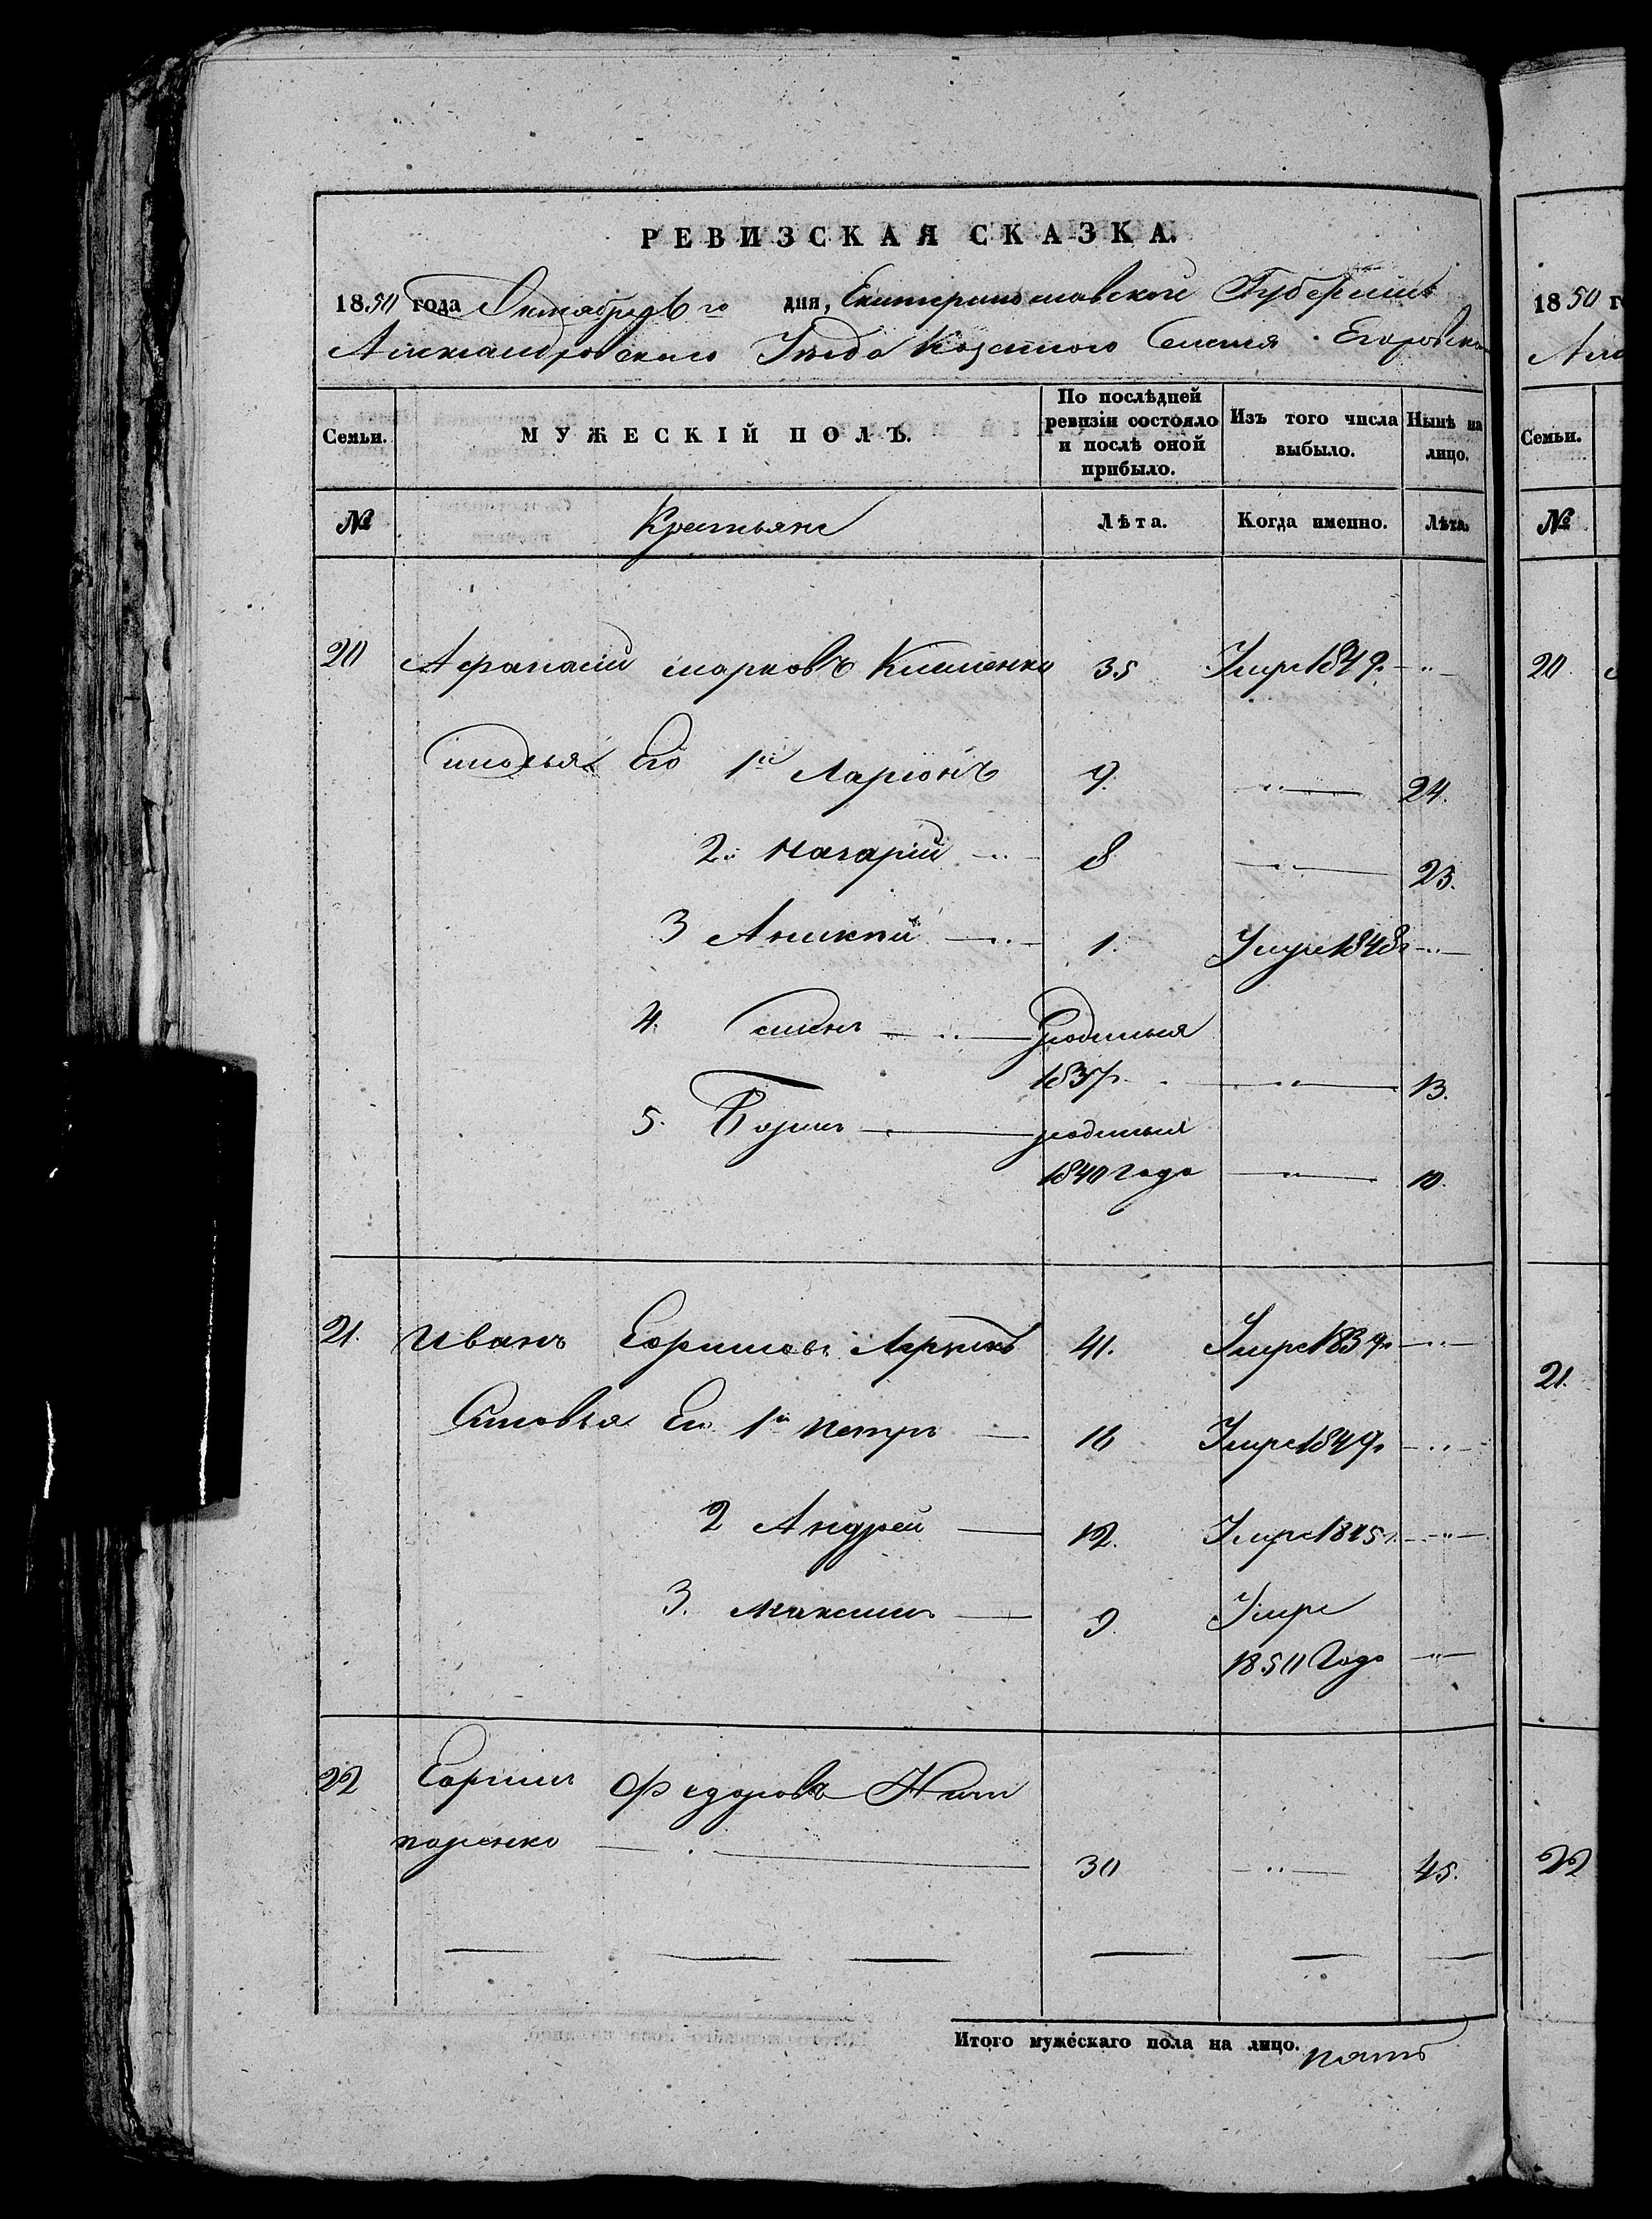 РЕВИЗСКАЯ СКАЗКА.
1850 года Октября 6го дня, Екатеринославской Губерніи
Александровского Уезда Козенного Селенія Егоровки
Семьи. МУЖЕСКІЙ ПОЛЪ. По послѣдней ревизіи состояло и послѣ оной прибыло. Изъ того числа выбыло. Нынѣ на лицо.
№ Крестьяне Лѣта. Когда именно. Лѣта.
20 Афанасій Марковъ Клименко 35 Умре 1849г.
Сыновья Его 1й Ларіонъ 9. 24.
2й Макарій 8 23.
3 Аникій 1. Умре 1848г
4. Семенъ родился
1837г. 13.
5. родился
1840 года 10.
21. Иванъ Ефимовъ 41. Умре 1839г
Сыновья Ег. 1й Петръ 16 Умре 1849г
2 Андрей 12. Умре 1845г.
3. Максимъ 9 Умре
1850 Года
22 Ефимъ Федоровъ Ничи
поренко 30 45.
Итого мужескаго пола на лицо. пять
1850 г
Але
Семьи.
№
20.
21.
22